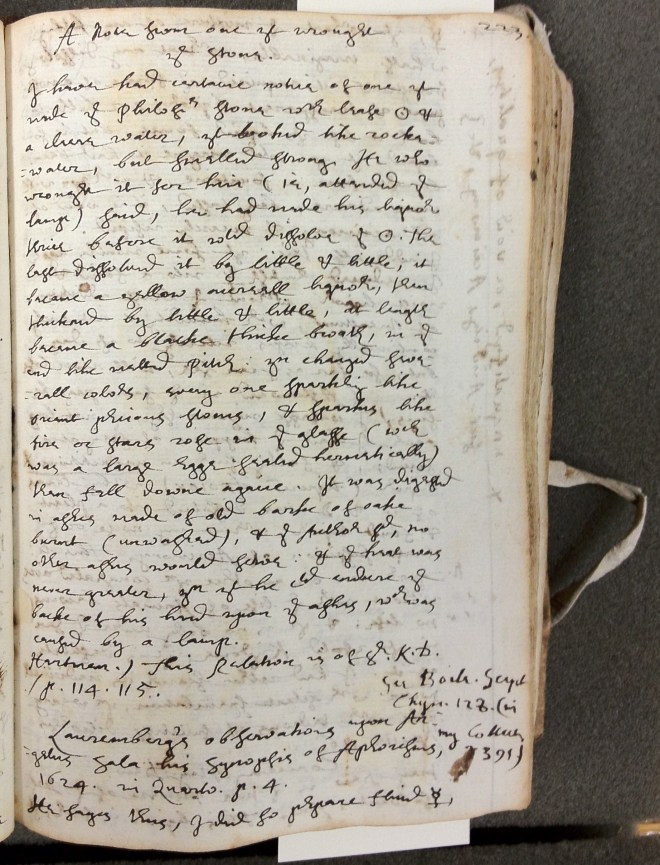 223.
A Note from one yt wrought
yt stone.
I have had certaine notice of one yt
made ye Philosrs stone wth leafe ☉ &
a cleere water, yt looked like rocke
-water, but smelled strong. He who
wrought it for him (ie, attended ye
lamp) said, he had made his liquor
thrice before it wold dissolve ye ☉. The
last dissolved it by little & little, it
became a yellow liquor, then
thickend by little & little, at length
became a blacke thicke broath, in ye
end like melted pitch: yn changed seve
-rall colors, every one sparkling like
orient precious stones, & sparkes like
fire or starrs rose in ye glasse (wch
was a large Egge sealed hermetically)
then fell downe againe. It was digested
in ashes made of old barke of oake
burnt (unwashed), & ye Author sd, no
other ashes would serve: & ye heat was
never greater, yn yt he cld endure ye
backe of his hand upon ye ashes, wch was
caused by a lamp.
Hartman.) This Relation is of Sr. K. D.
/p. 114. 115.
See Chym. 128. (in
my Collect. 2391)
Lauremberg's observations upon An
-gelus Sala his Synopsis of Aphorismes,
1624. in Quarto. p. 4.
He sayes thus, I did so prepare ☿,